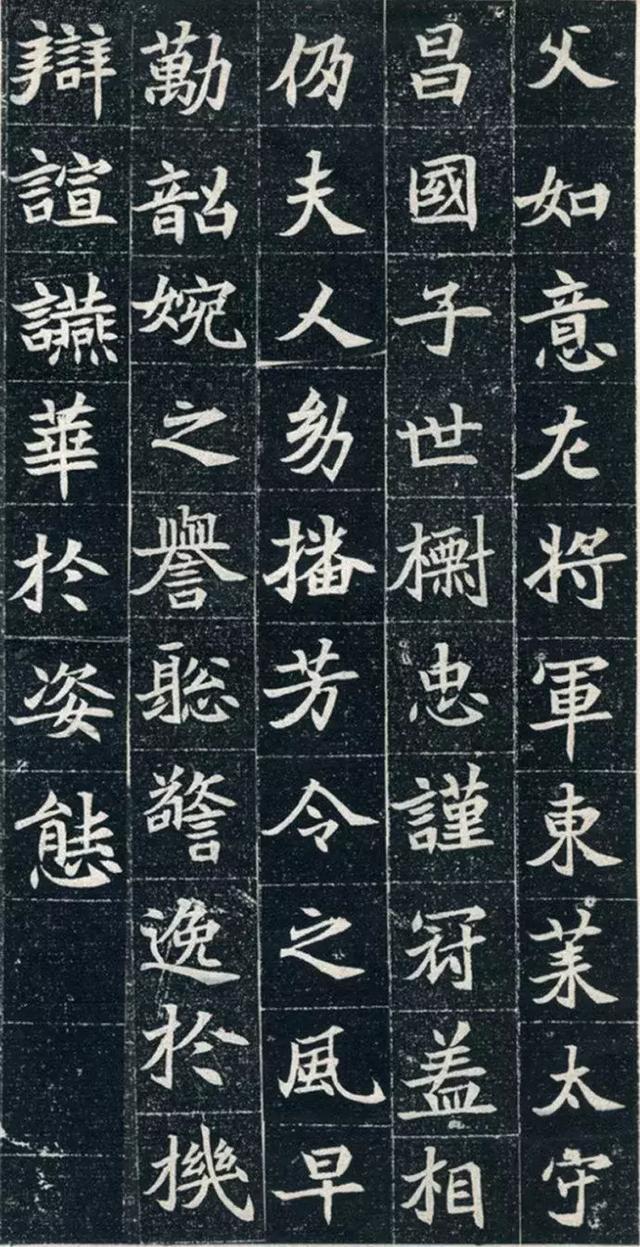 父如意左將軍東萊太守
昌國子世櫛忠謹冠蓋相
仍夫人幼播芳令之風早
勸韶婉之譽聡警逸於機
辯諠讌華於姿態